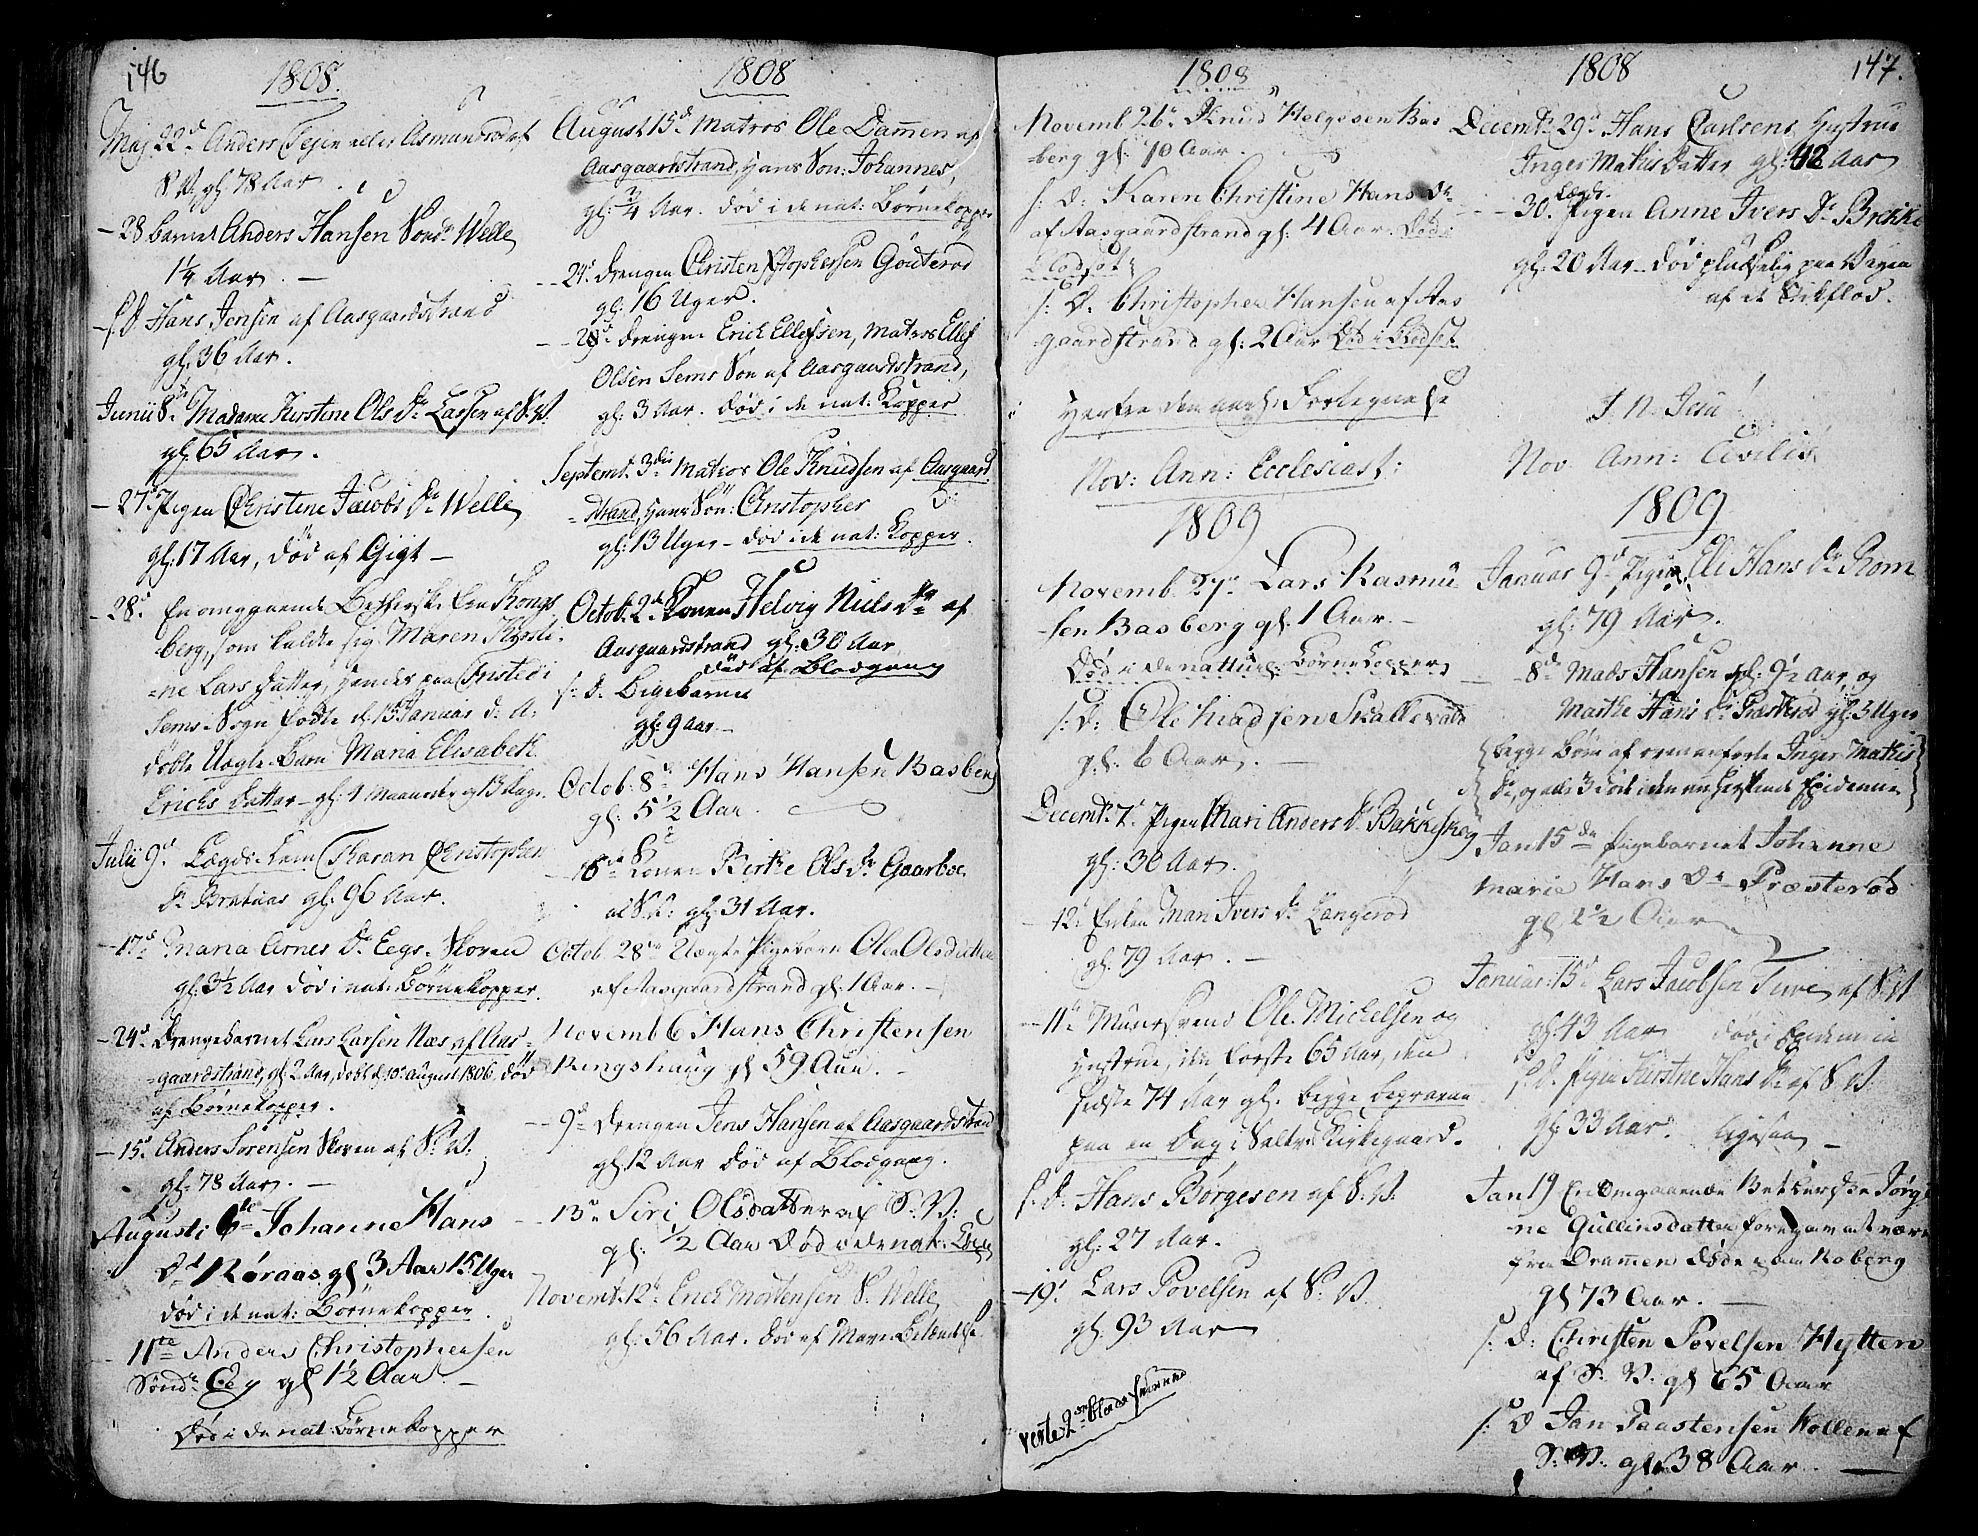 146
1808.
Maj 22d Anders Tejen eller Asmundrød af
S. V. gl. 78 Aar.
- 28 Barnet Anders Hansen Sondr Welle
1 1/4 Aar. -
- s. d. Hans Jensen af Aasgaardstrand
gl. 36 Aar.
Junii 8de Madame Kirstine Ols Dr Lassen af S. V.
gl. 65 Aar.
- 27d Pigen Christine Jacobs Dr Welle
gl: 17 Aar, død af Gigt -
- 28d En omgaaende Betlerske fra Kongs
berg, som kaldte sig Maren Kirsti-
=ne Lars Datter, hendes paa
Sems Sogn fødte d. 15 Januar d. A.
døbte Uægte Barn Maria Elisabeth
Erichs Datter - gl: 4 Maaneder og 13 Dage.
Julii 9d Lægds-Lem Karan Christophers
Dr gl: 96 Aar.
- 17d Maria Arnes Dr Eegs-Skoven
gl. 3 1/2 Aar død i nat: Børnekopper.
- 24d Drengebarnet Lars Larsen Næs af Aas=
=gaardstrand, gl. 2 Aar, døbt d. 10de August 1806 død
af Børnekopper.
- 15d Anders Sørensen Skoven af S: V:
gl: 78 Aar. -
Augusti 6te Johanne Hans
Dr Røraas gl 3 Aar 15 Uger
død i de nat: Børnekopper.
11te Anders Christophersen
Sønd: Eeg gl 1 1/2 Aar. -
Død i de nat: Børnekopper
1808
August 15d Matros Ole Dammen af
Aasgaardstrand, hans Søn: Johannes,
gl: 3/4 Aar. død i de nat: Børnekopper
- 24d Drengen Christen Xstophersen Gouterød
gl: 16 Uger.
- 28d Drengen Erich Ellefsen, Matros Ellef
Olsen Sems Søn af Aasgaardstrand,
gl: 3 Aar. død i de nat: Kopper
Septembr. 3die Matros Ole Knudsen af Aasgaard
=strand, hans Søn: Christopher
gl: 13 Uger - død i de nat: Kopper.
Octob. 2d Konen Helvig Niels Dr af
Aasgaardstrand gl: 30 Aar
død af Blodgang
s: d: Pigebarnet
gl: 9 Aar -
Octob: 8de Hans Hansen Basberg
gl: 5 1/2 Aar.
- 16de Konen Birthe Ols Dr Gaarboe
af S.V: gl: 31 Aar.
Octob. 28de Uægte Pigebarn Olea Olsdatter
af Aasgaardstrand gl: 1 Aar. -
Novemb 6 Hans Christensen
Ringshaug gl 59 Aar. -
- 9d Drengen Jens Hansen af Aasgaardstrand
gl: 12 Aar død af Blodgang.
- 13d Siri Olsdatter af S: V:
gl: 1/2 Aar Død i de nat:
Novembr: 12d Erich Mortensen S. Welle
gl: 56 Aar. død af
1808
Novemb 26d Knud Helgesen Bas
berg gl: 70 Aar.
s: d: Karen Christine Hans Dr
af Aasgaardstrand gl: 4 Aar. Død i
Blodsot
s: d. Christopher Hansen af Aas
gaardstrand gl: 2 Aar Død i Blodsot
Nov: Ann: Ecclesiast:
1809
Novemb. 27d Lars Rasmu
sen Basberg gl: 1 Aar. -
Død i de naturl. Børnekopper
s. d: Ole Madsen Skallevold
gl: 6 Aar. -
Decembr. 7d Pigen Mari Anders Dr Bakkeskoug
gl: 30 Aar.
- 12d Enken Mari Ivers Dr Længerød
gl: 79 Aar. -
- 11d Muursvend Ole Michelsen og
Hustrue, den første 65 Aar, den
sidste 74 Aar gl. begge begravne
paa en Dag i Kirkegaard.
s. d: Hans Børgesen af S. V.
gl: 27 Aar.
- 19d Lars Povelsen af S: V.
gl: 93 Aar
verte 2de Blade
1808
147.
Decembr 29d Hans Carlsens Hustrue
Inger Mathis Datter gl: 42 Aar
- 30. Lægds. Pigen Anne Ivers Dr Brekke
gl: 20 Aar - død pludselig paa Vejen
af et Stikflod.
J. N. Jesu
Nov. Ann: Civilis
1809
Januar 9d Pigen Eli Hans Dr Rom
gl: 79 Aar.
- 8d Mads Hansen gl: 9 1/2 Aar, og
Marthe Hans Dr Præsterød gl: 3 Uger
begge Børn af ovenanførte Inger Mathis
Dr, og alle 3 død i den nu herskende Epidemie
Jan 15de Pigebarnet Johanne
Marie Hans Dr Præsterød
gl 2 1/2 Aar
Januar: 15d Lars Jacobsen Tvee af S: V.
gl: 43 Aar død i Epidemien
s. d. Pigen Kirstine Hans Dr af S. V.
gl: 33 Aar. ligesaa -
Jan 19 En Omgaaende Betlerske Jørgi
ne Gullinsdatter foregav at være
fra Drammen døde paa Roberg
gl 73 Aar. -
s. d: Christen Povelsen Hytten
af S. V. gl 65 Aar
s. d Jan Taastensen Wollen af
S: V: gl 38 Aar. -